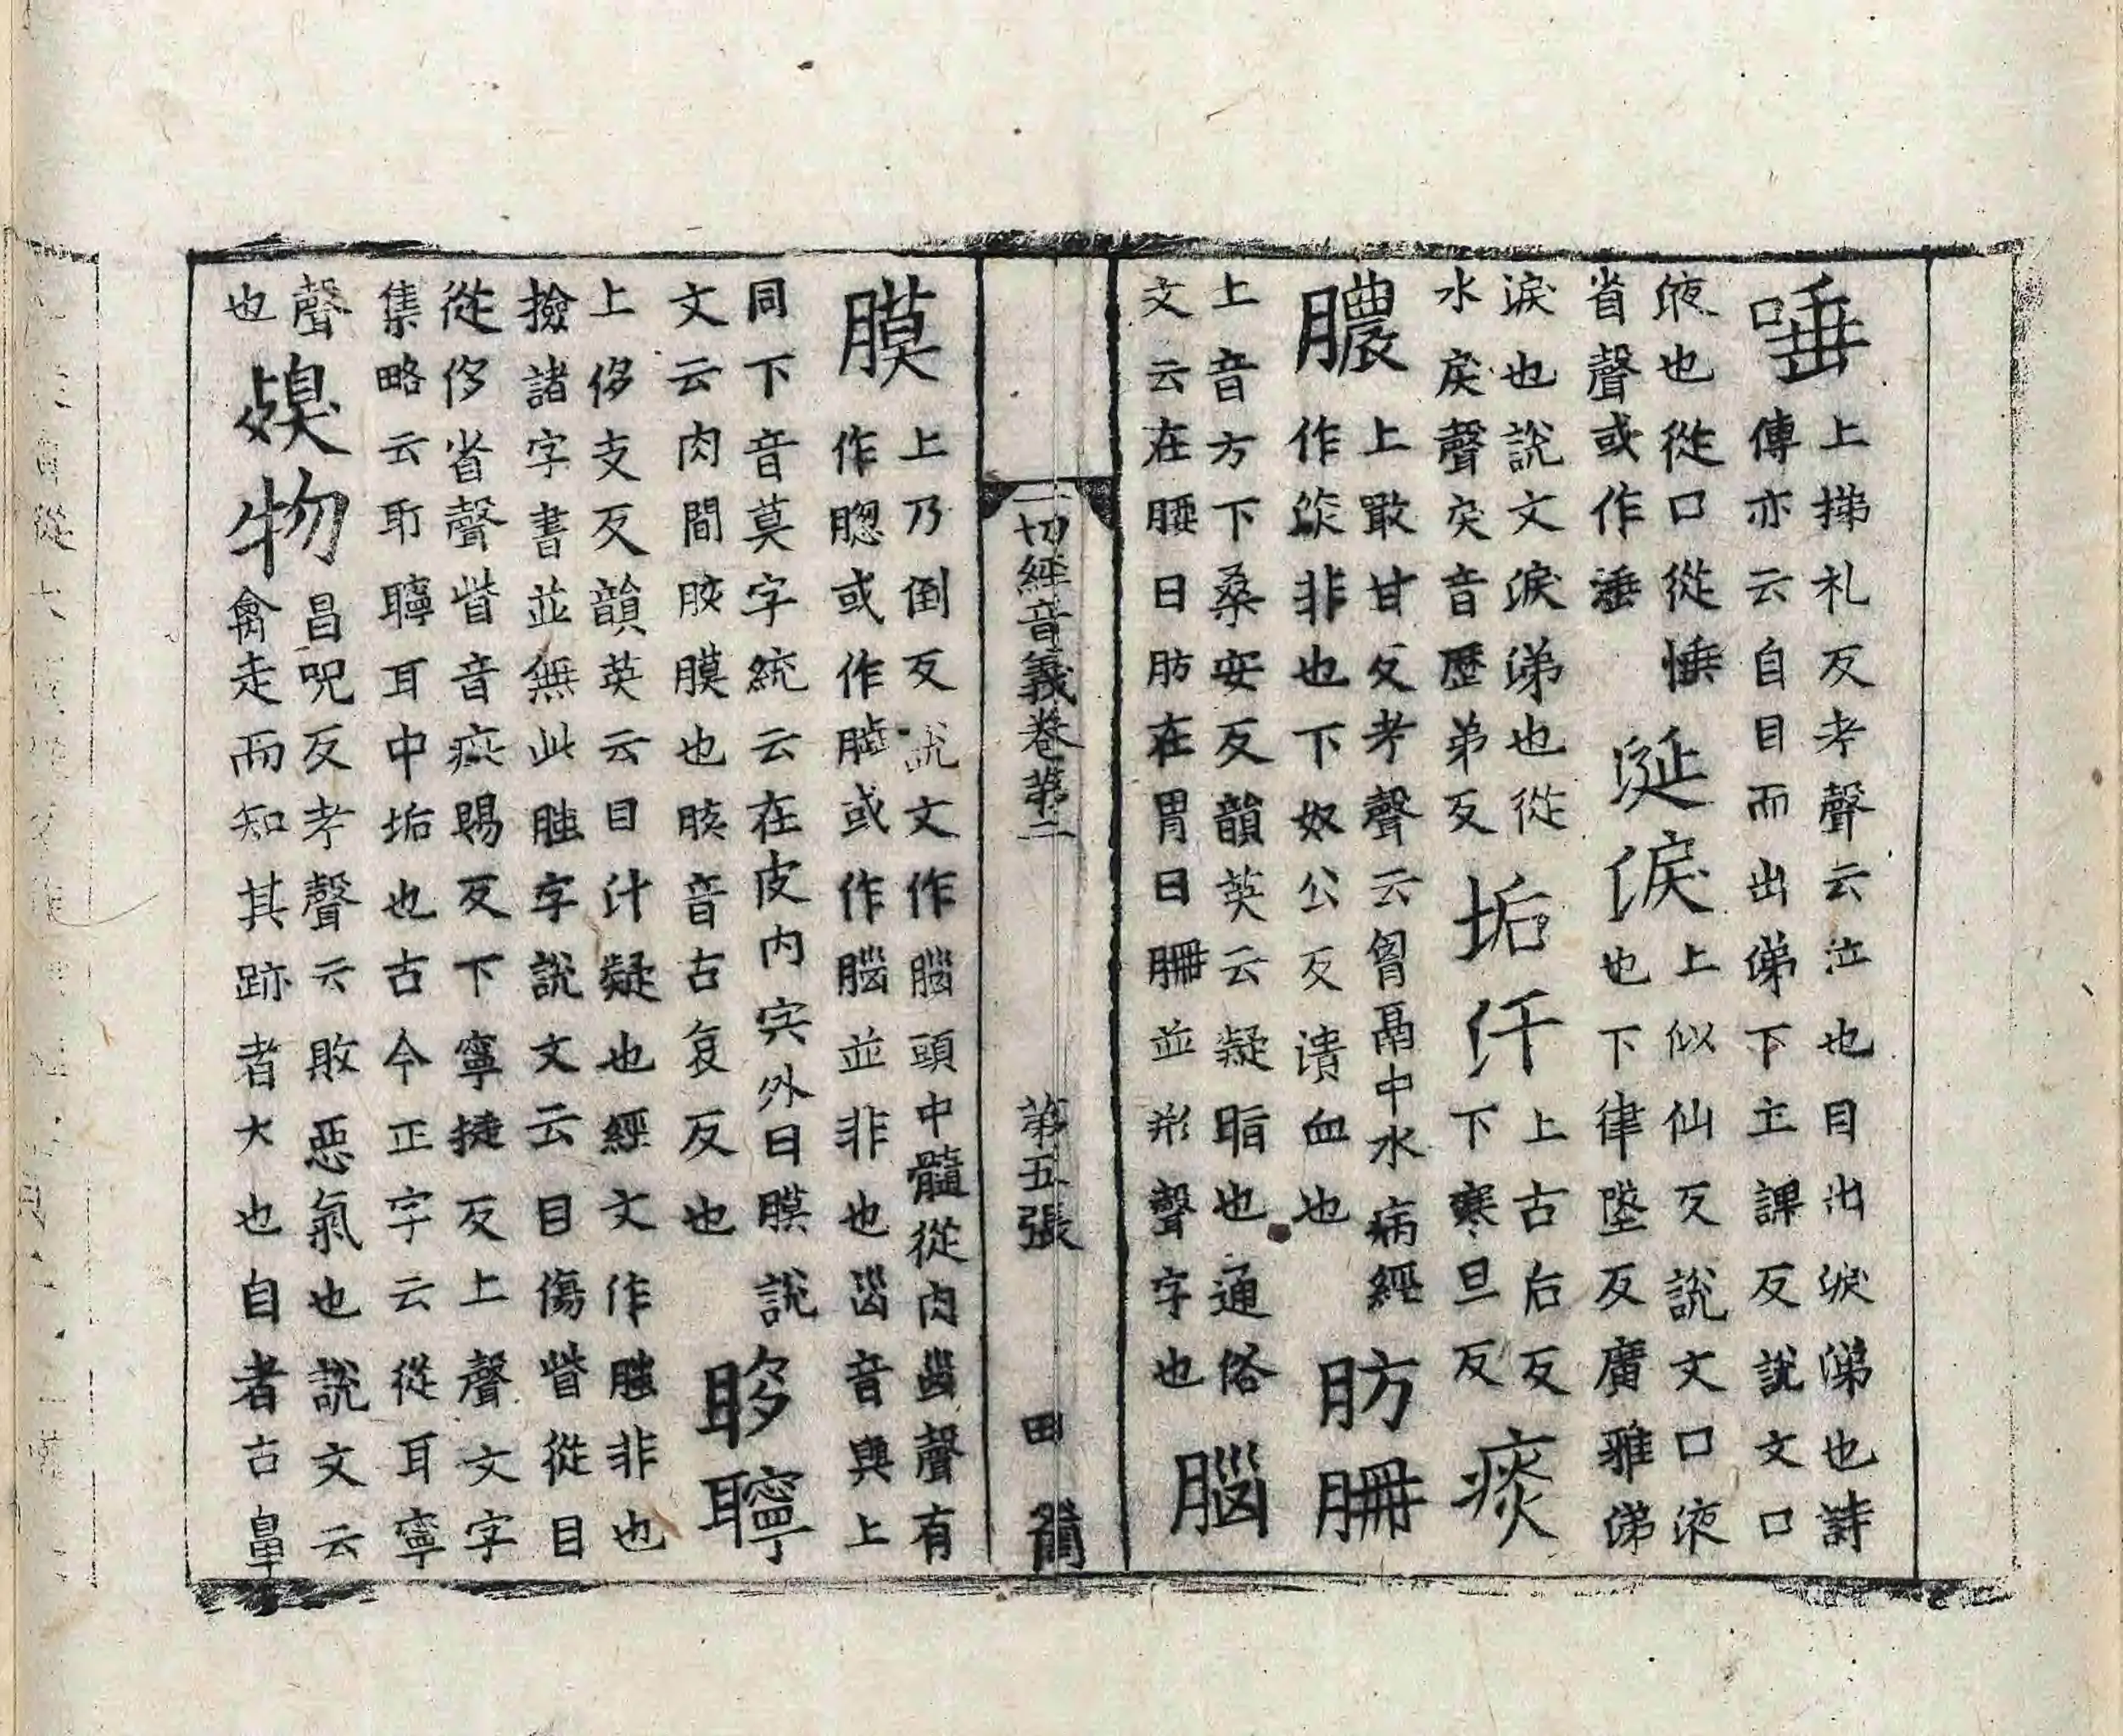 唾
上挮札反考聲云泣也目出淚涕也詩
傳亦云自目而出俤下土課反說文口
液也從口從𢛎
省聲或作𣿇
涎淚
上似仙反說文口液
也下律墜反廣雅俤
淚也說文淚涕也從
水戾聲戾音歷弟反
垢仟
上古后反
下寒旦反
痰
膿
上敢甘反考聲云胷鬲中水病經
作㳄非也下奴公反潰血也
肪𦙱
上音方下桑安反韻英云凝脂也通俗
文云在腰曰肪在胃曰𦙱並形聲字也
腦
膜
上乃倒反說文作腦頭中髓從肉𡿺聲有
作𦠊或作𦛁或作腦並非也𡿺音與上
同下音莫字統云在皮內宍外曰膜說
文云肉間胲膜也胲音古哀反也
眵聹
上侈支反韻英云目汁凝也經文作𦚾非也
撿諸字書並無此𦚾字說文云目傷眥從目
從侈省聲眥音疵賜反下寧挺反上聲文字
集略云耵聹耳中垢也古今正字云從耳寧
聲
也
㚖物
昌呪反考聲云敗惡氣也說文云
禽走而知其跡者犬也自者古鼻
一切經音義卷第二
第五張
田